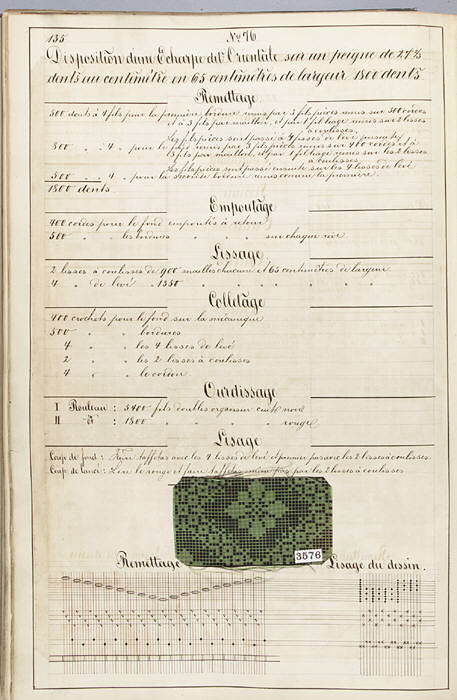 135
No. 76
Disposition d'une Echarpe dite Orientale sur un peigne de 27 7/10
dents au centimètre en 65 centimètres de largeur 1800 dents
Remettage
500 dents à 4 fils pour la première bordure remis par 3 fils pièces remis sur 500 cordes
et à 3 fils par maillon, et par 1 fil liage remis sur 2 lisses
à coulisses.
Les fils pièces sont passé à 4 lisses de levé ensuite
800 " " 4 " pour le remis par 3 fils pièces remis sur 400 cordes et à
fils par maillon, et par 1 fil liage remis sur les 2 lisses
à coulisses.
Les fils pièces sont passé ensuite sur les 4 lisses de levé
500 " " 4 " pour la seconde bordure remis comme la première
1800 dents
Empoutage
400 cordes pour le fond empoutés à retour
500 " " les bordures " " " sur chaque rive
Lissage
2 lisses à coulisses de 900 mailles chacune et 65 centimètres de largeur
4 " de levé " 1350 " " " " " "
Colletage
400 crochets pour le fond sur la mécanique
500 " " bordures
4 " " les 4 lisses de levé
2 " " les 2 lisses à coulisses
4 " " le cordon
Ourdissage
I Rouleau : 5400 fils doubles organsin cuit noir
II " d° : 1800 " " " " rouge
Lisage
Coup de fond : taffetas avec les 4 lisses de levé et par les 2 lisses à coulisses.
Coup de lancé : Lire le rouge et faire taffetas même pas par les 2 lisses à coulisses
3576
Remettage
Lisage du dessin.